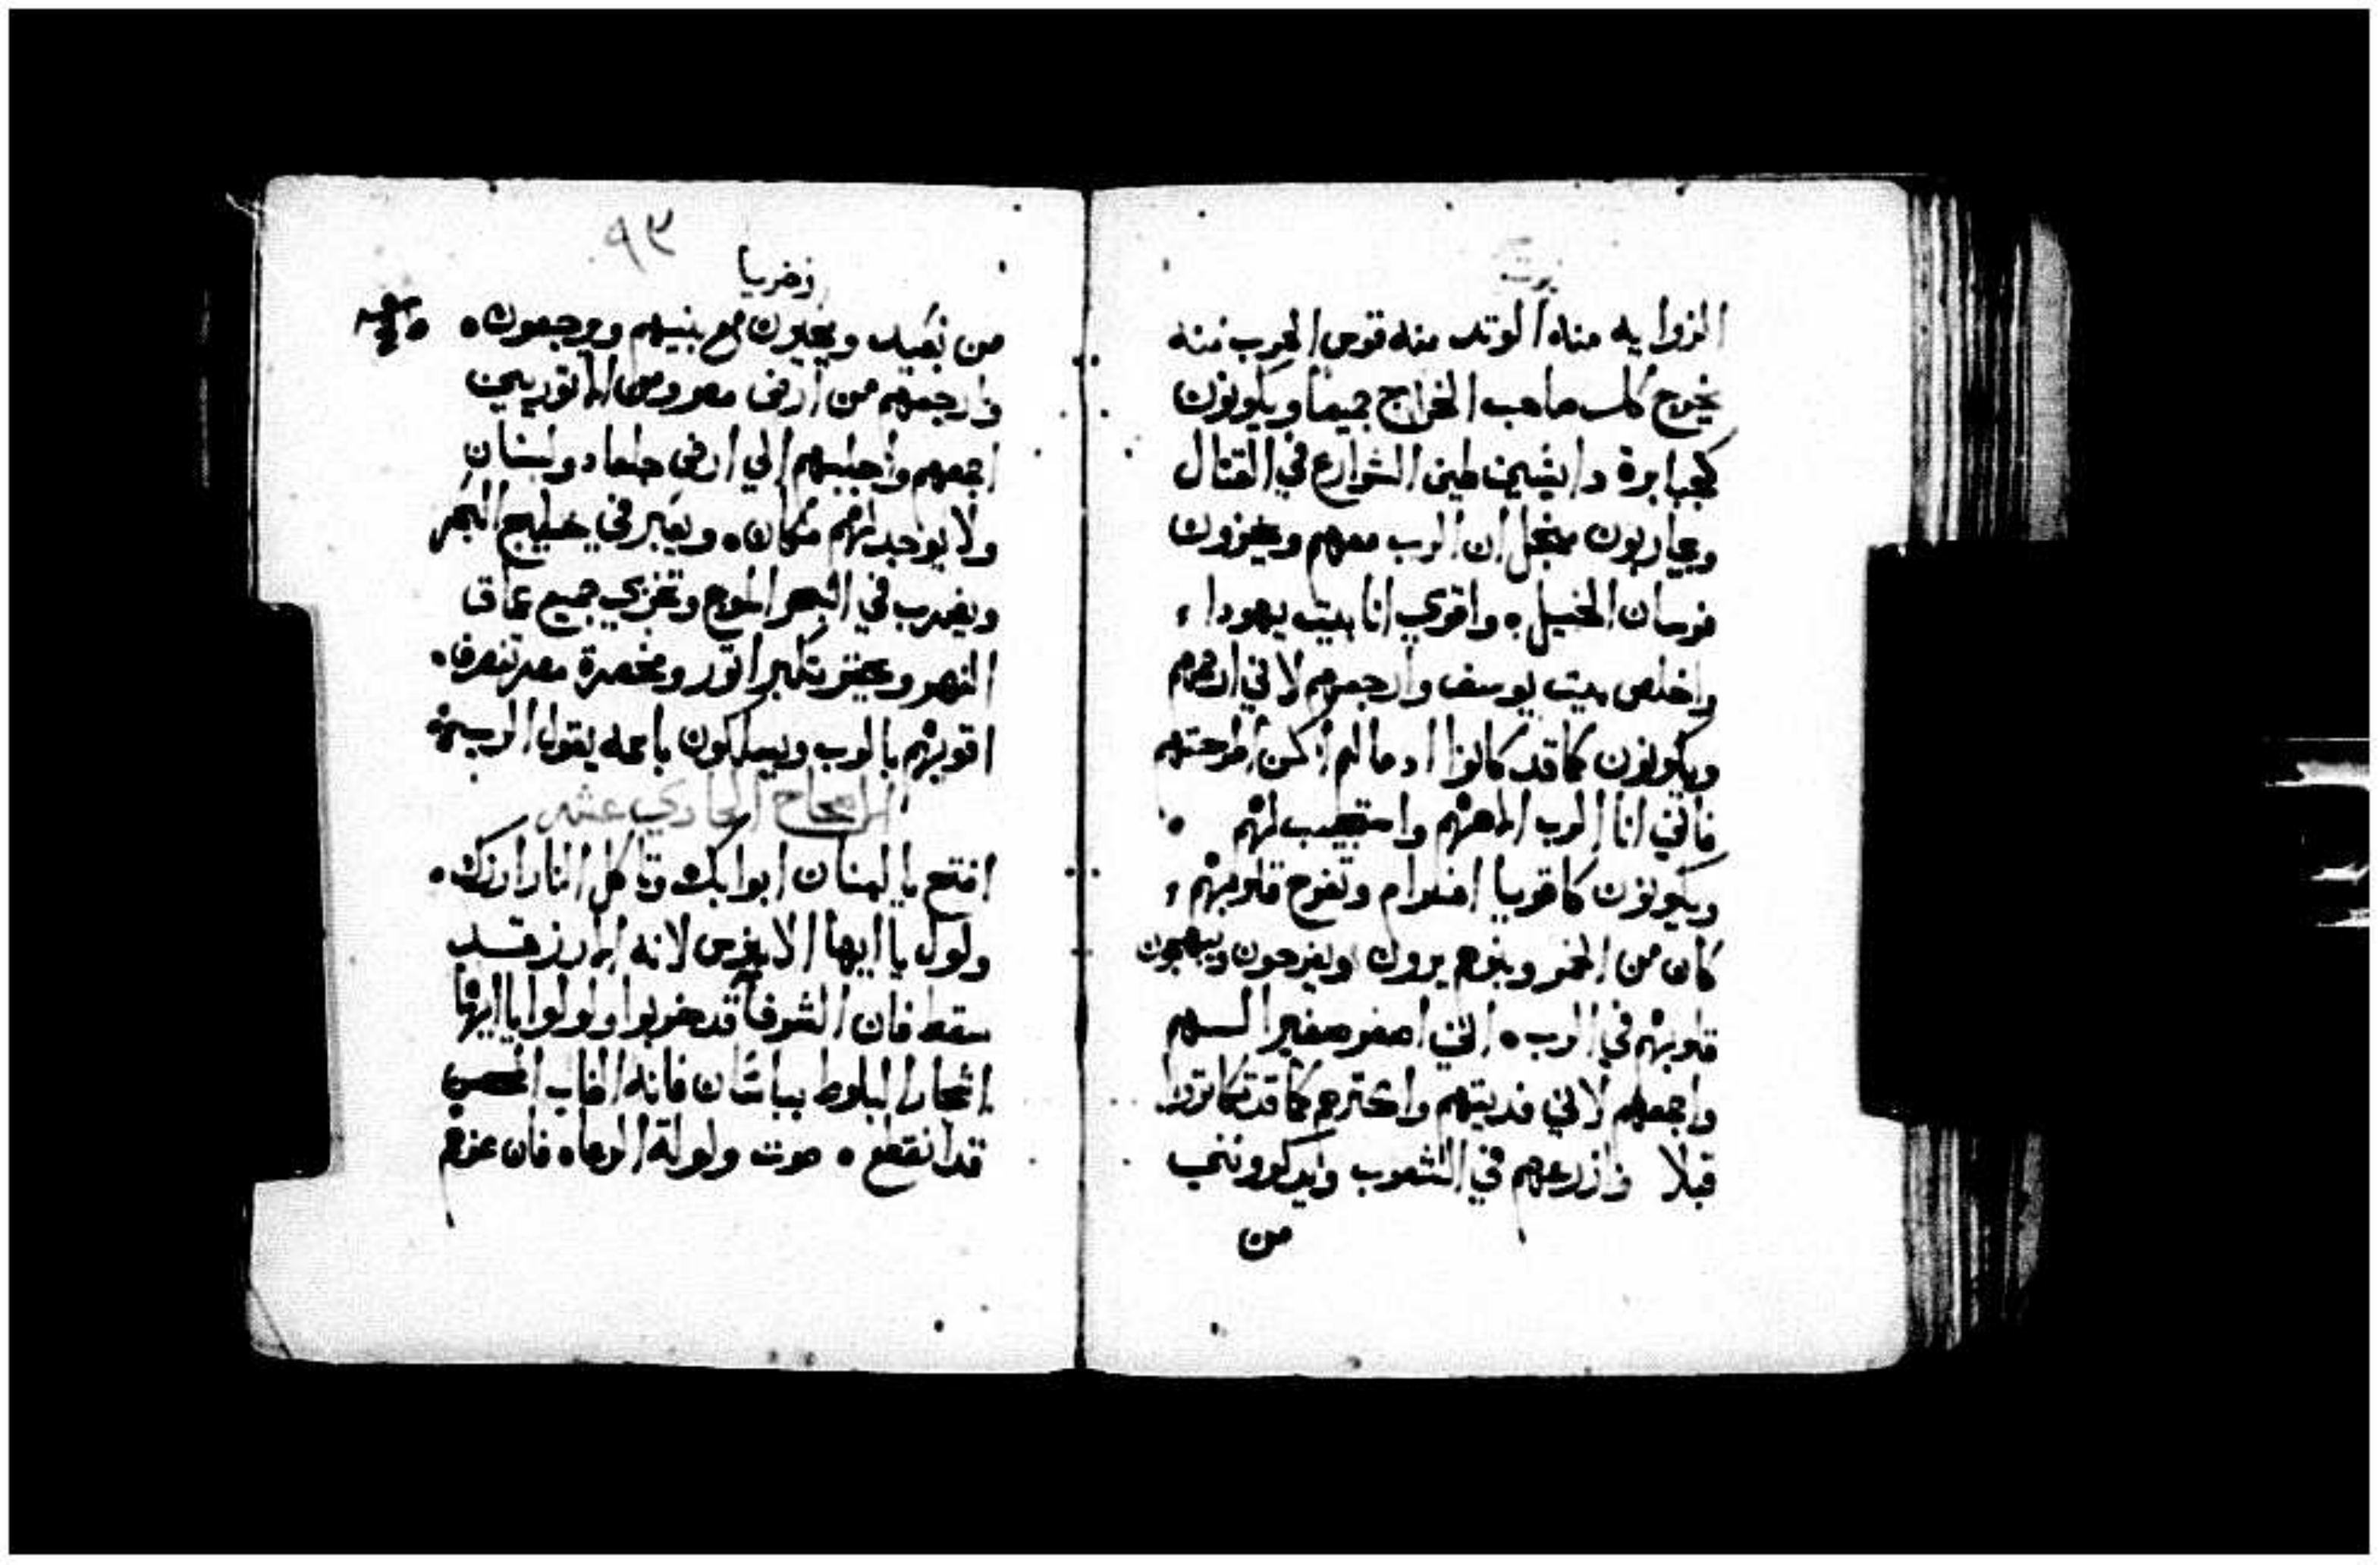 الزوايه منه الوتد منه قوس الحرب منه
يخرج كل صاحب الخراج جميعا ويكونون
كجبابرة دايشين طين الشوارع في القتال
ويحاربون من اجل ان الرب معهم ويخزون
فرسان الخيل. واقوي انا بيت يهودا،
واخلص بيت يوسف وارجعهم لاني ارحمهم
ويكونون كما قد كانوا اد ما لم اكن اطرحتهم
فاني انا الرب الاههم واستجيب لهم .
ويكونون كاقويا افرام وتفرح قلوبهم،
كان من الخمر وبنوهم يرون ويفرحون ويبتهجون
قلوبهم في الرب. انني اصفر صفير السهم
واجمعهم لاني فديتهم واكثرهم كما قد كانوا
قبلا وازرعهم في الشعوب ويدكرونني
من
زخريا
٩٣
من بعيد ويحيون مع بنيهم ويرجعون.
وارجعهم من ارض مصر ومن الاتوريين
اجمعهم واجلبهم الي ارض جلعاد ولبنان
ولا يوجد لهم مكان. ويعبر في خليج البحر
ويضرب في البحر الموج وتخزي جميع عماق
النهر ويحتقر تكبر اتور ومخصرة مصر تنصرف.
اقويهم بالرب ويسلكون باسمه يقول الرب
الاصحاح الحادي عشر
افتح يا لبنان ابوابك وتاكل النار ارزك.
ولول يا ايها الابهزس لانه الارز قد
سقط فان الشرفا قد خربوا ولولوا يا ايها
اشجار البلوط بباشان فانه الغاب الحصين
قد انقطع. صوت ولولة الرعاه فان عزهم